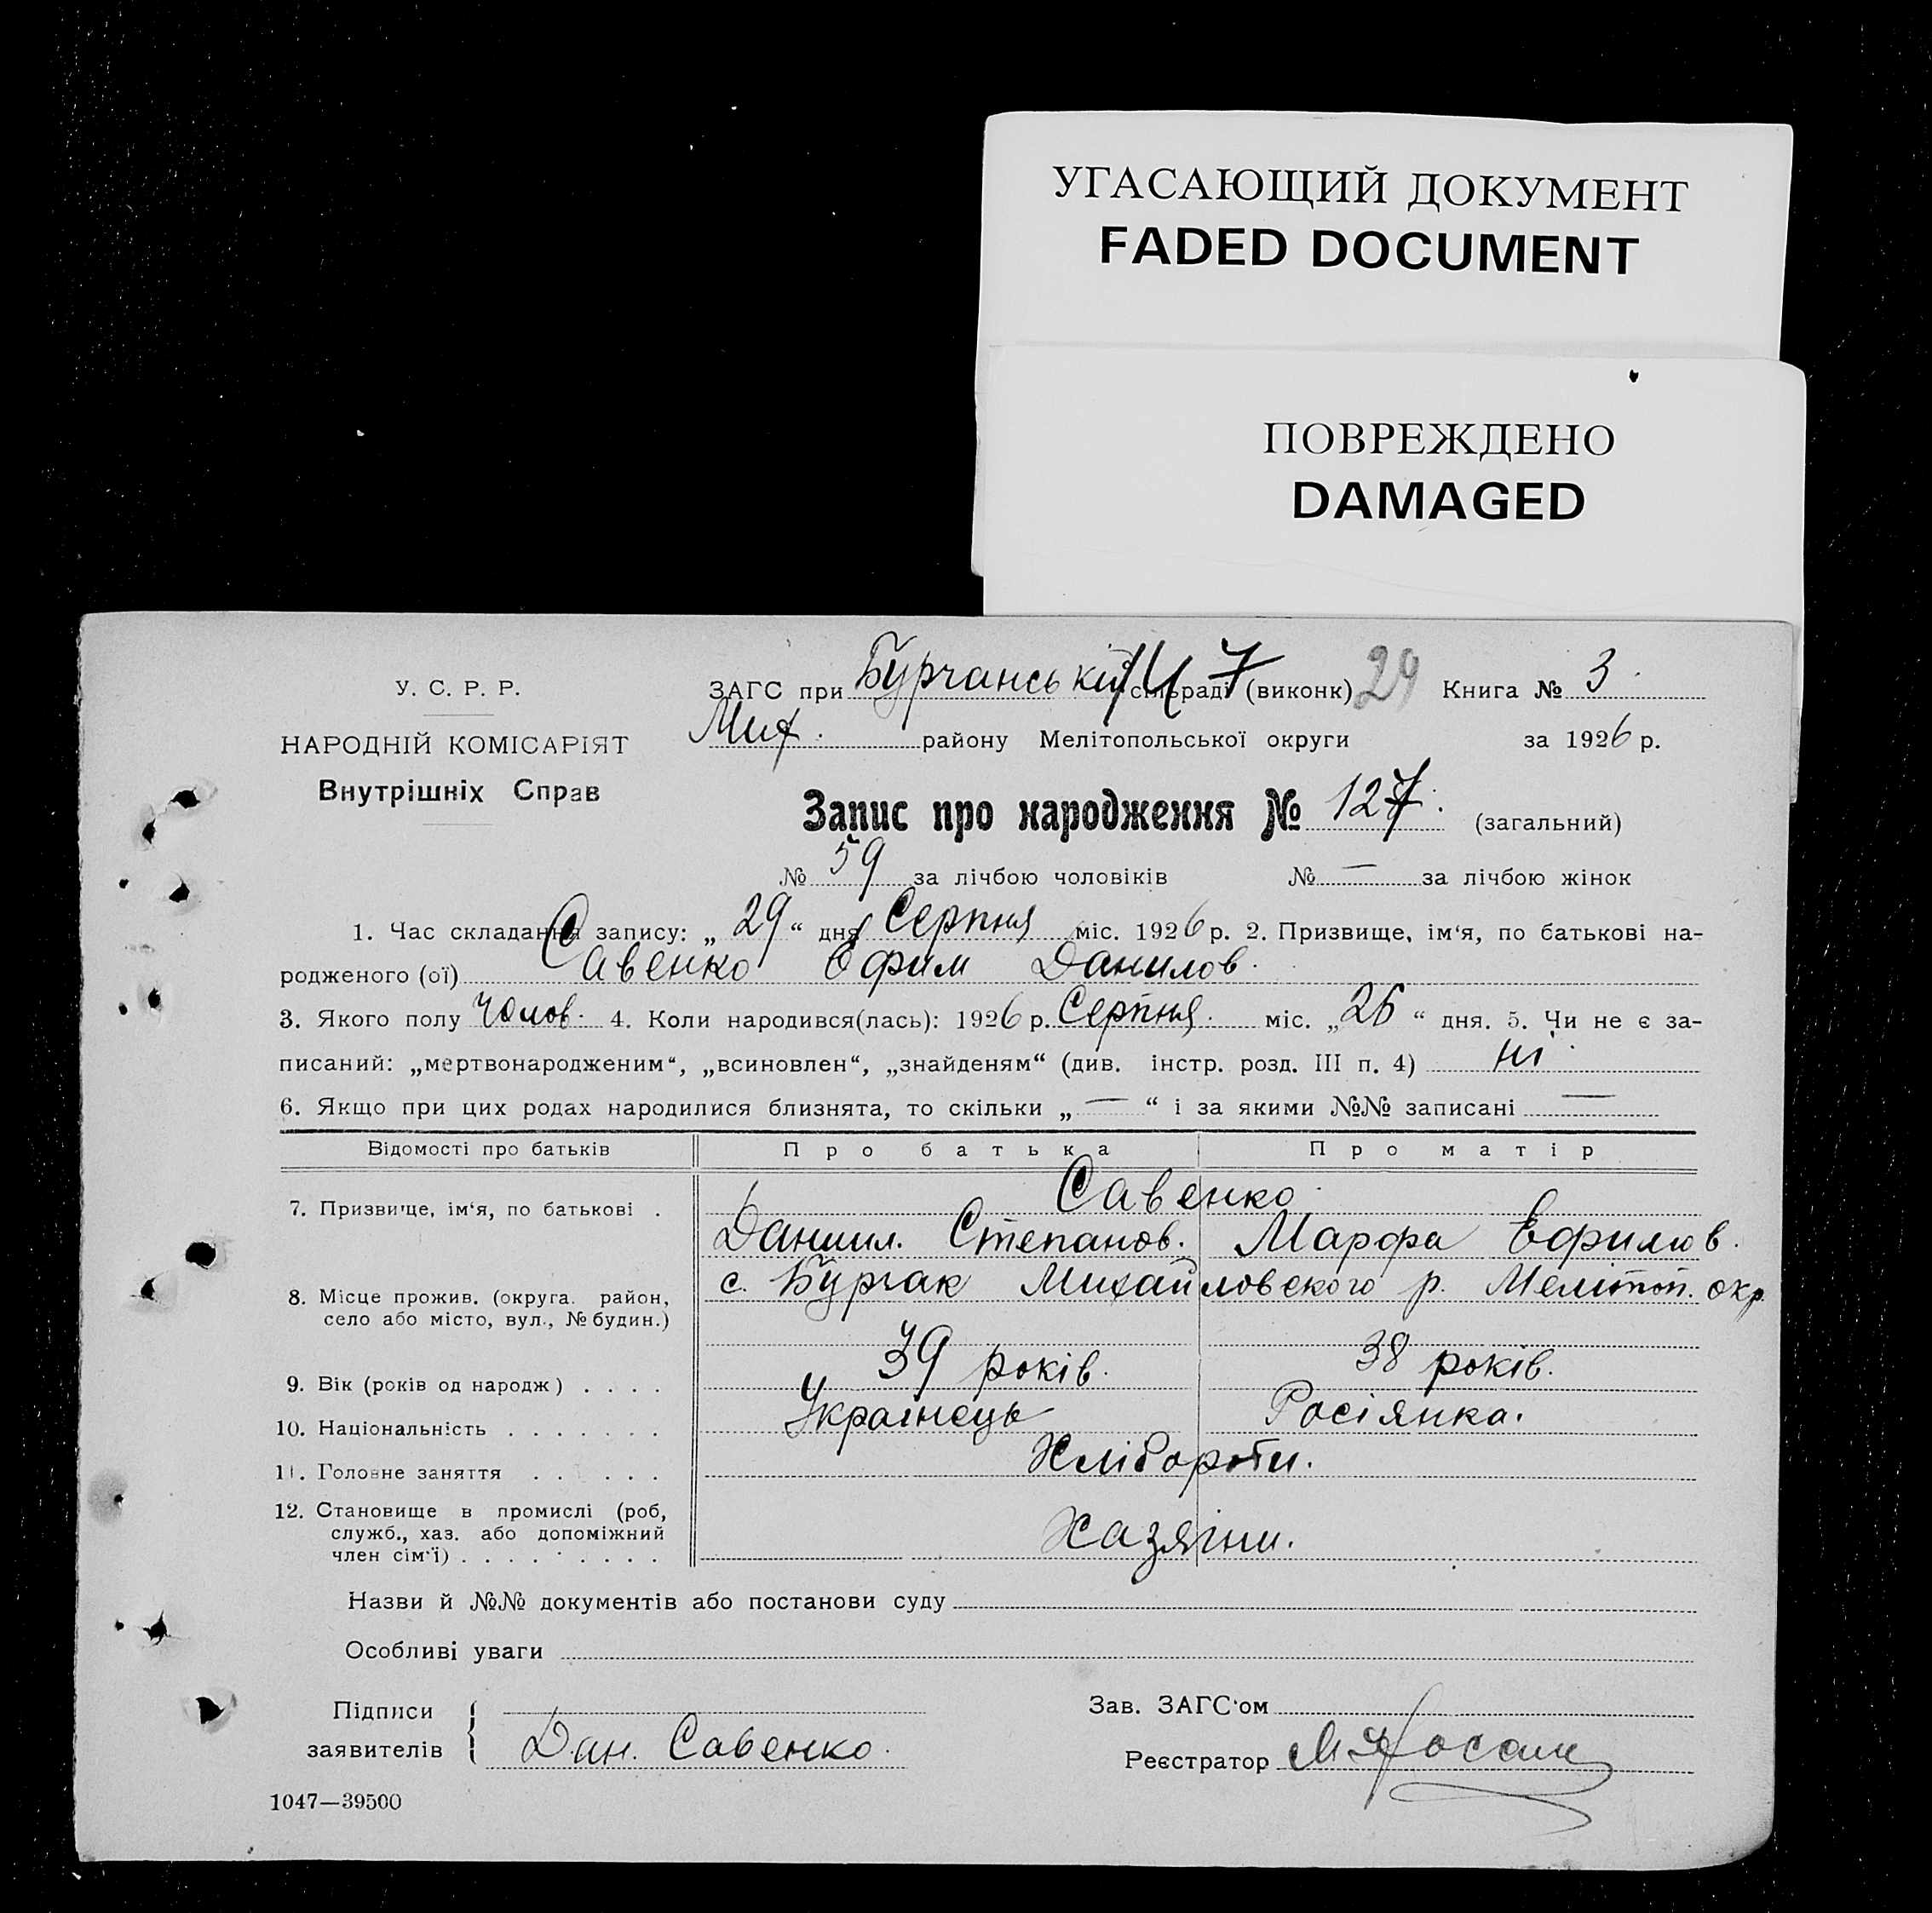 УГАСАЮЩИЙ ДОКУМЕНТ
FADED DOCUMENT
ПОВРЕЖДЕНО
DAMAGED
У. С. Р. Р.
НАРОДНІЙ КОМІСАРІЯТ
Внутрішніх Справ
ЗАГС при Бурчанській сільраді (виконк) 29 Книга № 3
Мих. району Мелітопольської округи за 1926 р.
Запис про народження № 127. (загальний)
№ 59 за лічбою чоловіків № — за лічбою жінок
1. Час складання запису: „29“ дня Серпня міс. 1926 р. 2. Призвище, ім'я, по батькові на-
родженого (ої) Савенко Ефим Данилов.
3. Якого полу Чолов. 4. Коли народився(лась): 1926 р. Серпня. міс. „26“ дня. 5. Чи не є за-
писаний: „мертвонародженим“, „всиновлен“, „знайденям“ (див. інстр. розд. III п. 4) ні.
6. Якщо при цих родах народилися близнята, то скільки „—“ і за якими №№ записані —
Відомості про батьків Про батька Про матір
7. Призвище, ім'я, по батькові . Савенко.
Даниил. Степанов. Марфа Ефимов.
8. Місце прожив. (округа. район, село або місто, вул., № будин.) с. Бурчак Михайловского р. Мелітоп. окр.
9. Вік (років од народж) . . . . 39 років. 38 років.
10. Національність . . . . . . . Українець Росіянка.
11. Головне заняття . . . . . . Хлібороби.
12. Становище в промислі (роб,
служб., хаз. або допоміжний
член сім'ї) . . . . . . . . . Хазяїни.
Назви й №№ документів або постанови суду
Особливі уваги
Підписи
заявителів Дан. Савенко.
Зав. ЗАГС'ом
Реєстратор
1047—39500